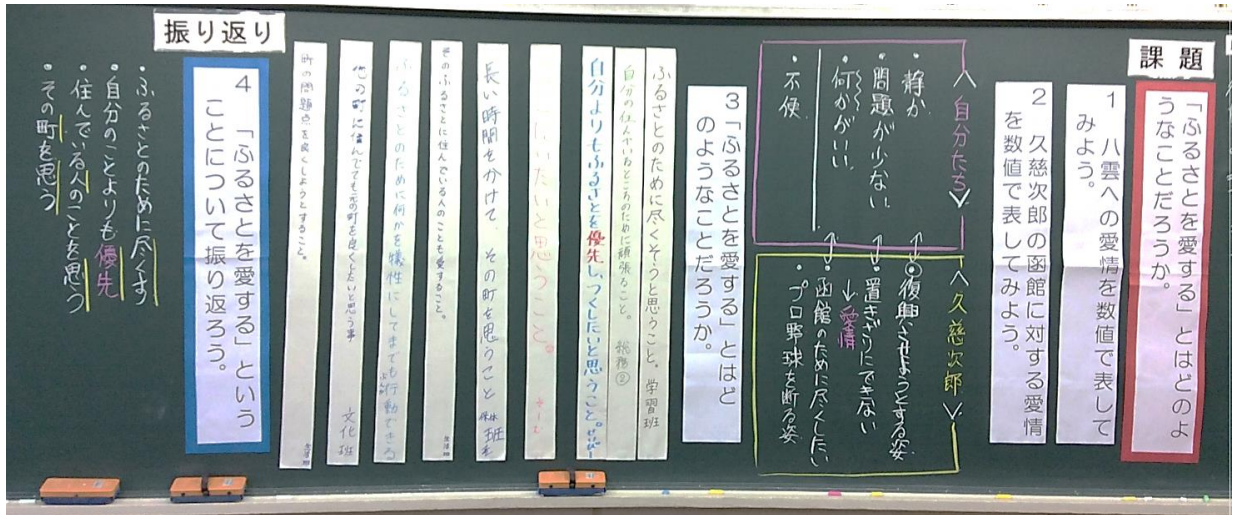 課題
「ふるさとを愛する」とはどのよ
うなことだろうか。
1 八雲への愛情を数値で表して
みよう。
2 久慈次郎の函館に対する愛情
を数値で表してみよう。
＜自分たち＞
・静か
・問題が少ない
・何がいい
・不便
＜久慈次郎＞
・復興させようとする姿
・置きざりにできない
↓愛情
・函館のために尽くしたい
・プロ野球を断る姿
3「ふるさとを愛する」とはど
のようなことだろうか。
ふるさとのために尽くそうと思うこと。学習班
自分の住んでいるところのために頑張ること。 総務②
自分よりもふるさとを優先し、つくしたいと思うこと。
たいと思うこと。
長い時間をかけて、その町を思うこと 班
そのふるさとに住んでいる人のことも愛すること。
ふるさとのために何かを犠牲にしてまでも行動できる
他の町に住んでても元の町を良くしたいと思う事 文化班
町の問題点を良くしようとすること。
振り返り
4 「ふるさとを愛する」という
ことについて振り返ろう。
・ふるさとのために尽くす
・自分のことよりも優先
・住んでいる人のことを思う
・その町を思う